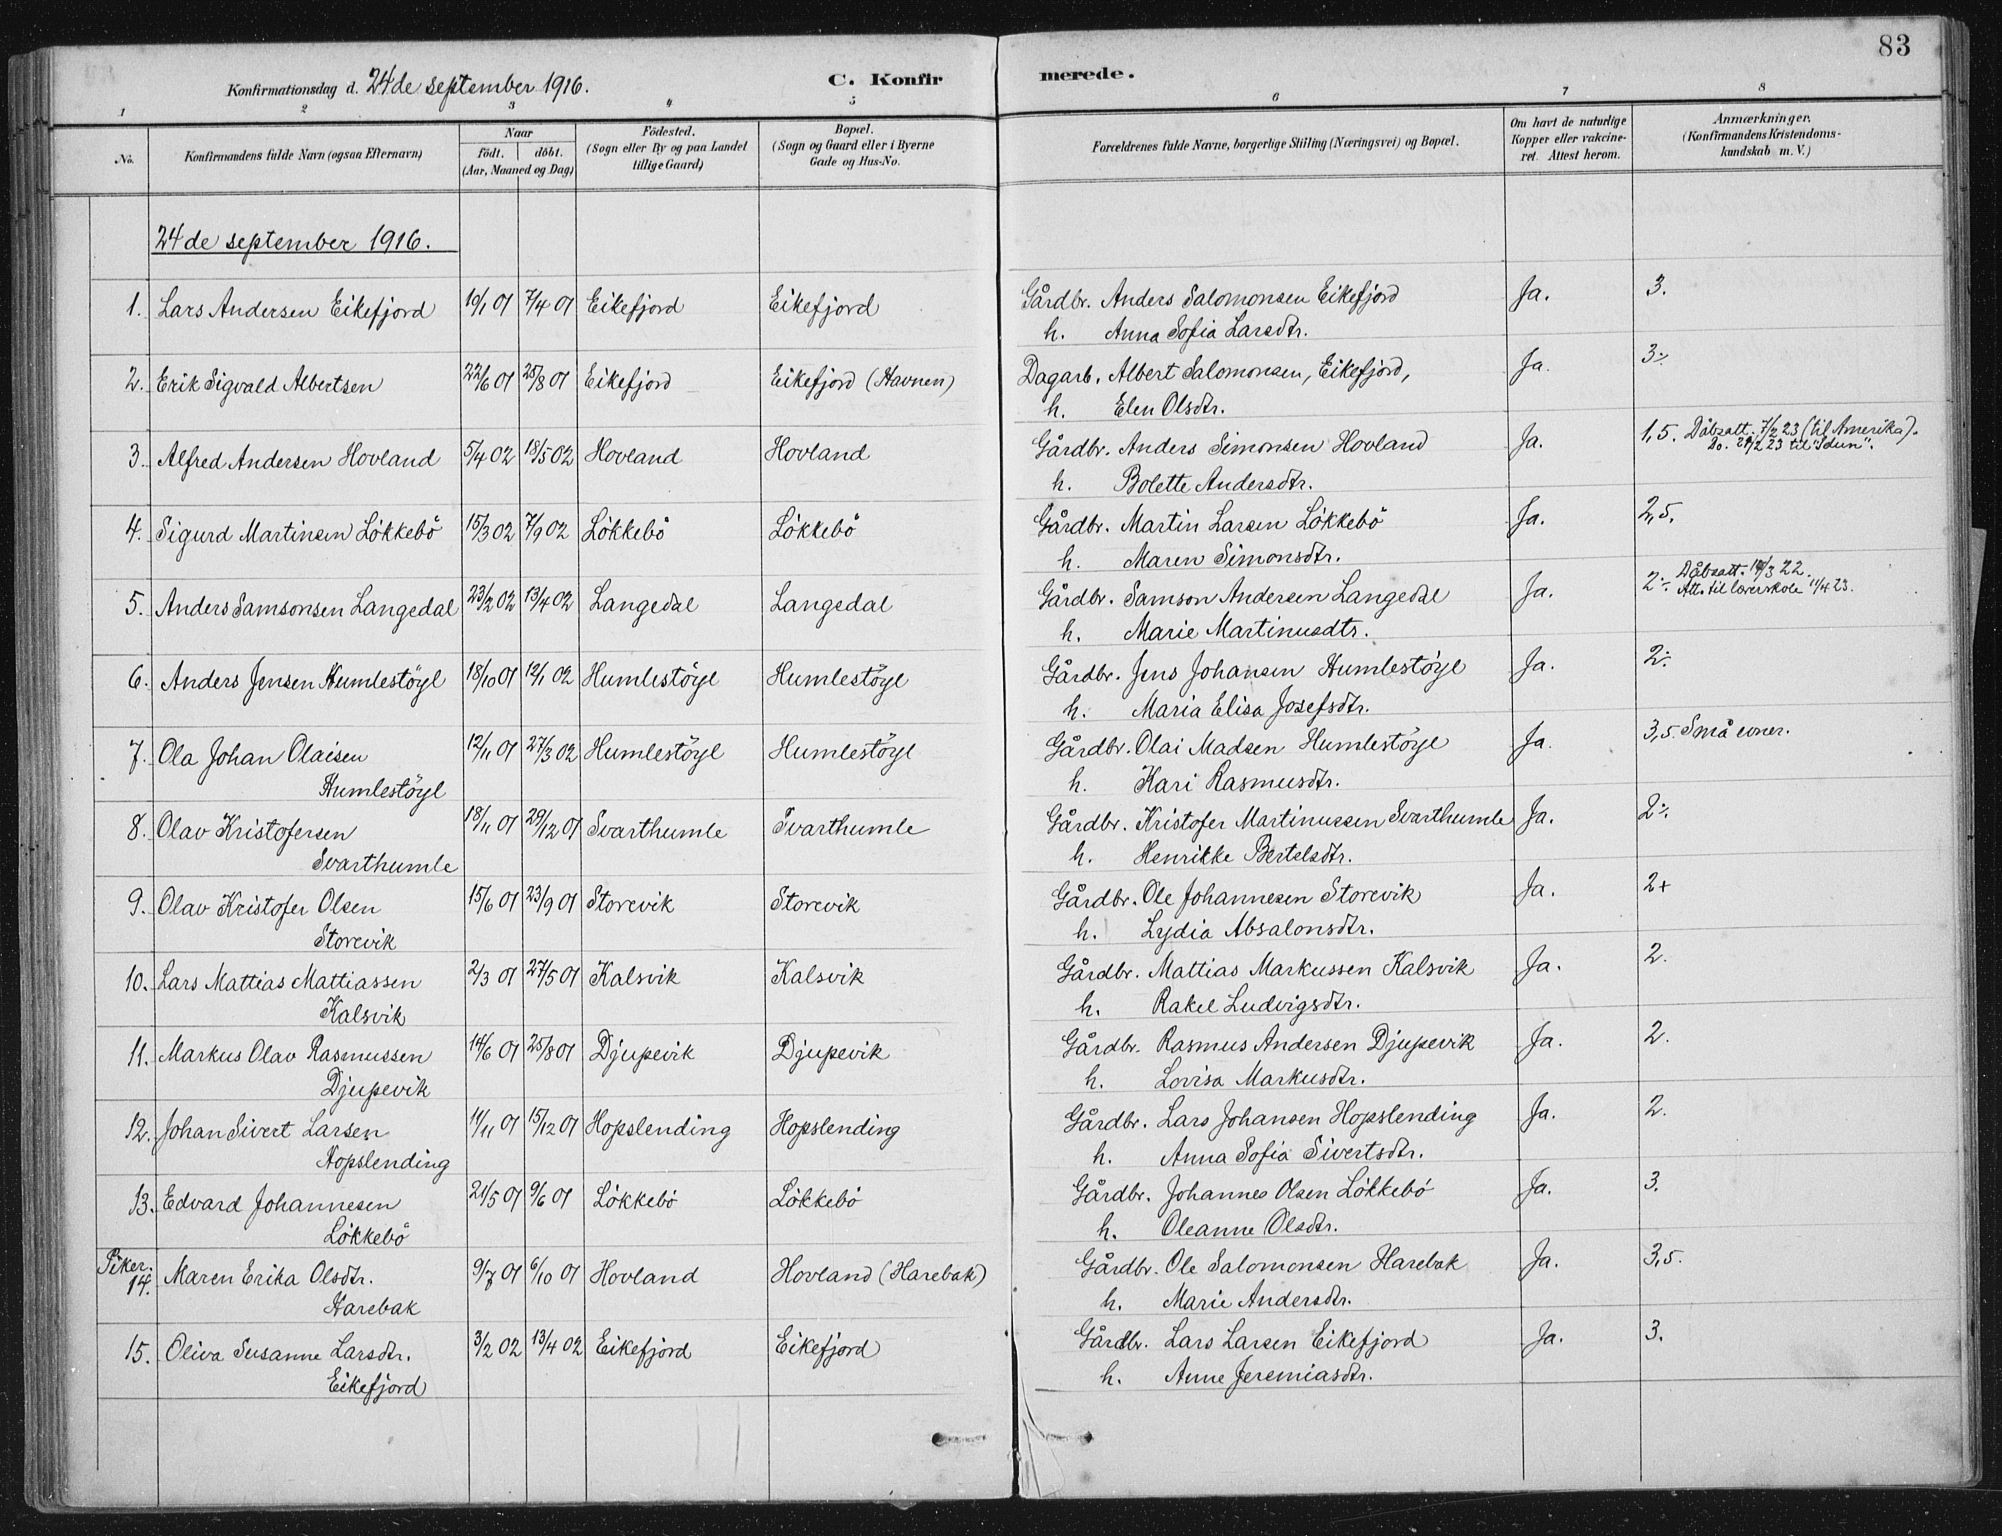 83
Konfirmationsdag d. 24de september 1916. C. Konfirmerede.
1 2 3 4 5 6 7 8
No. Konfirmandens fulde Navn (ogsaa Efternavn) Naar födt. döbt. (Aar, Maaned og Dag) Födested. (Sogn eller By og paa Landet tillige Gaard) Bopæl. (Sogn og Gaard eller i Byerne Gade og Hus-No. Forældrenes fulde Navne, borgerlige Stilling (Næringsvei) og Bopæl. Om havt de naturlige Kopper eller vakcineret. Attest herom. Anmærkninger. (Konfirmandens Kristendomskundskab m. V.)
24de september 1916.
1. Lars Andersen Eikefjord 19/1 01 7/4 01 Eikefjord Eikefjord Gårdbr. Anders Salomonsen Eikefjord Ja. 3.
h. Anna Sofia Larsdtr.
2. Erik Sigvald Albertsen 22/6 01 25/8 01 Eikefjord Eikefjord (Havnen) Dagarb. Albert Salomonsen, Eikefjord, Ja. 3÷
h. Elen Olsdtr.
3. Alfred Andersen Hovland 5/4 02 18/5 02 Hovland Hovland Gårdbr. Anders Simonsen Hovland Ja. 1,5. Dåbsatt. 7/2 23 (til Amerika).
Do. 21/2 23 til "Idun".
h. Bolette Andersdtr.
4. Sigurd Martinsen Lökkebö 15/3 02 7/9 02 Lökkebö Lökkebö Gårdbr. Martin Larsen Lökkebö Ja. 2,5.
h. Maren Simonsdtr.
5. Anders Samsonsen Langedal 23/2 02 13/4 02 Langedal Langedal Gårdbr. Samson Andersen Langedal Ja. 2÷ Dåbsatt. /3 22.
Att. til lærerskole 11/4 23.
h. Marie Martinusdtr.
6. Anders Jensen Humlestöyl 18/10 01 12/1 02 Humlestöyl Humlestöyl Gårdbr. Jens Johansen Humlestöyl Ja. 2÷
h. Maria Elisa Josefsdtr.
7. Ola Johan Olaisen 12/11 01 27/3 02 Humlestöyl Humlestöyl Gårdbr. Olai Madsen Humlestöyl Ja. 3,5. Små evner.
Humlestöyl h. Kari Rasmusdtr.
8. Olav Kristofersen 18/11 01 29/12 01 Svarthumle Svarthumle Gårdbr. Kristofer Martinussen Svarthumle Ja. 2÷
Svarthumle h. Henrikke Bertelsdtr.
9. Olav Kristofer Olsen 15/6 01 23/9 01 Storevik Storevik Gårdbr. Ole Johannesen Storevik Ja. 2+
Storevik h. Lydia Absalonsdtr.
10. Lars Mattias Mattiassen 2/3 01 27/5 01 Kalsvik Kalsvik Gårdbr. Mattias Markussen Kalsvik Ja. 2.
Kalsvik h. Rakel Ludvigsdtr.
11. Markus Olav Rasmussen 14/6 01 25/8 01 Djupevik Djupevik Gårdbr. Rasmus Andersen Djupevik Ja. 2.
Djupevik h. Lovisa Markusdtr.
12. Johan Sivert Larsen 11/11 01 15/12 01 Hopslending Hopslending Gårdbr. Lars Johansen Hopslending Ja. 2.
Hopslending h. Anna Sofia Sivertsdtr.
13. Edvard Johannesen 21/5 01 9/6 01 Lökkebö Lökkebö Gårdbr. Johannes Olsen Lökkebö Ja. 3.
Lökkebö h. Oleanne Olsdtr.
Piker.
14. Maren Erika Olsdtr. 9/7 01 6/10 01 Hovland Hovland (Harebak) Gårdbr. Ole Salomonsen Harebak Ja. 3,5.
Harebak h. Marie Andersdtr.
15. Oliva Susanne Larsdtr. 3/2 02 13/4 02 Eikefjord Eikefjord Gårdbr. Lars Larsen Eikefjord Ja. 3.
Eikefjord h. Anne Jeremiasdtr.